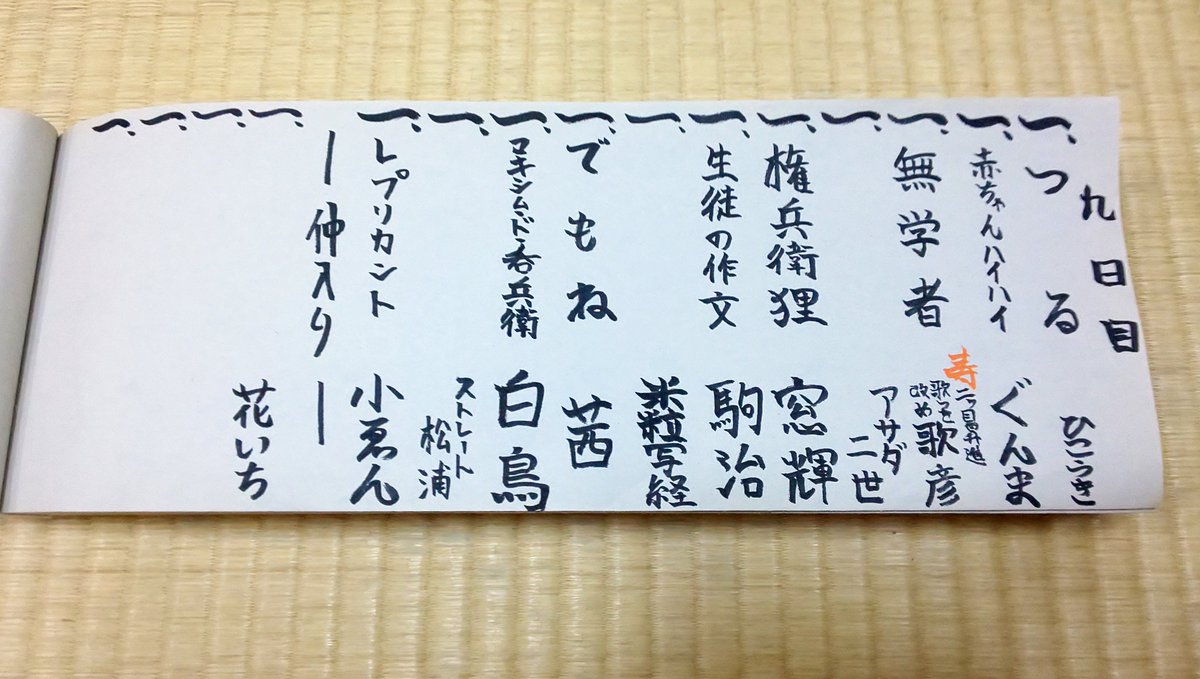 九日目
一、つる ひこうき
一、赤ちゃんハイハイ ぐんま
一、無学者 寿 二ツ目昇進 歌つを改め 歌彦
一、アサダ二世
一、権兵衛狸 窓輝
一、生徒の作文 駒治
一、米粒写経
一、でもね 茜
一、マキシム・ド・呑兵衛 白鳥
一、ストレート松浦
一、レプリカント 小ゑん
ー仲入りー
一、花いち
一、
一、
一、